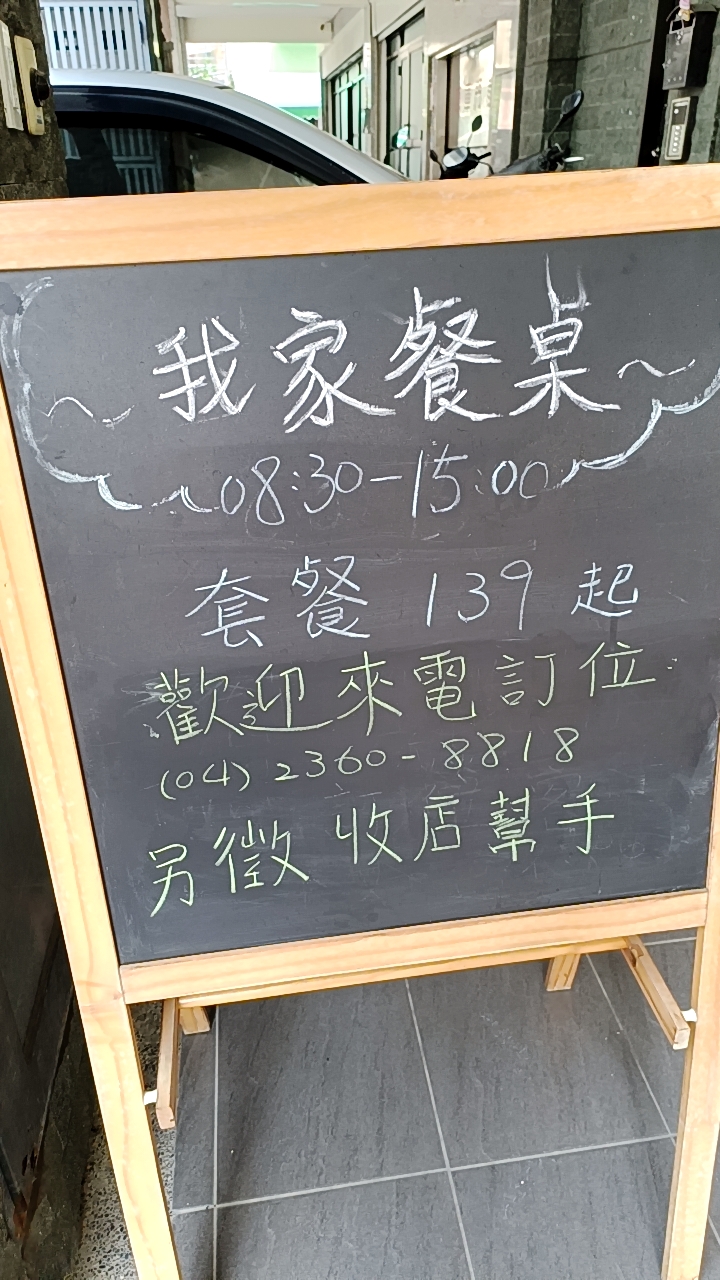 ~我家餐桌~
~08:30-15:00~
套餐 139 起
歡迎來電訂位
(04) 2360-8818
另徵 收店幫手